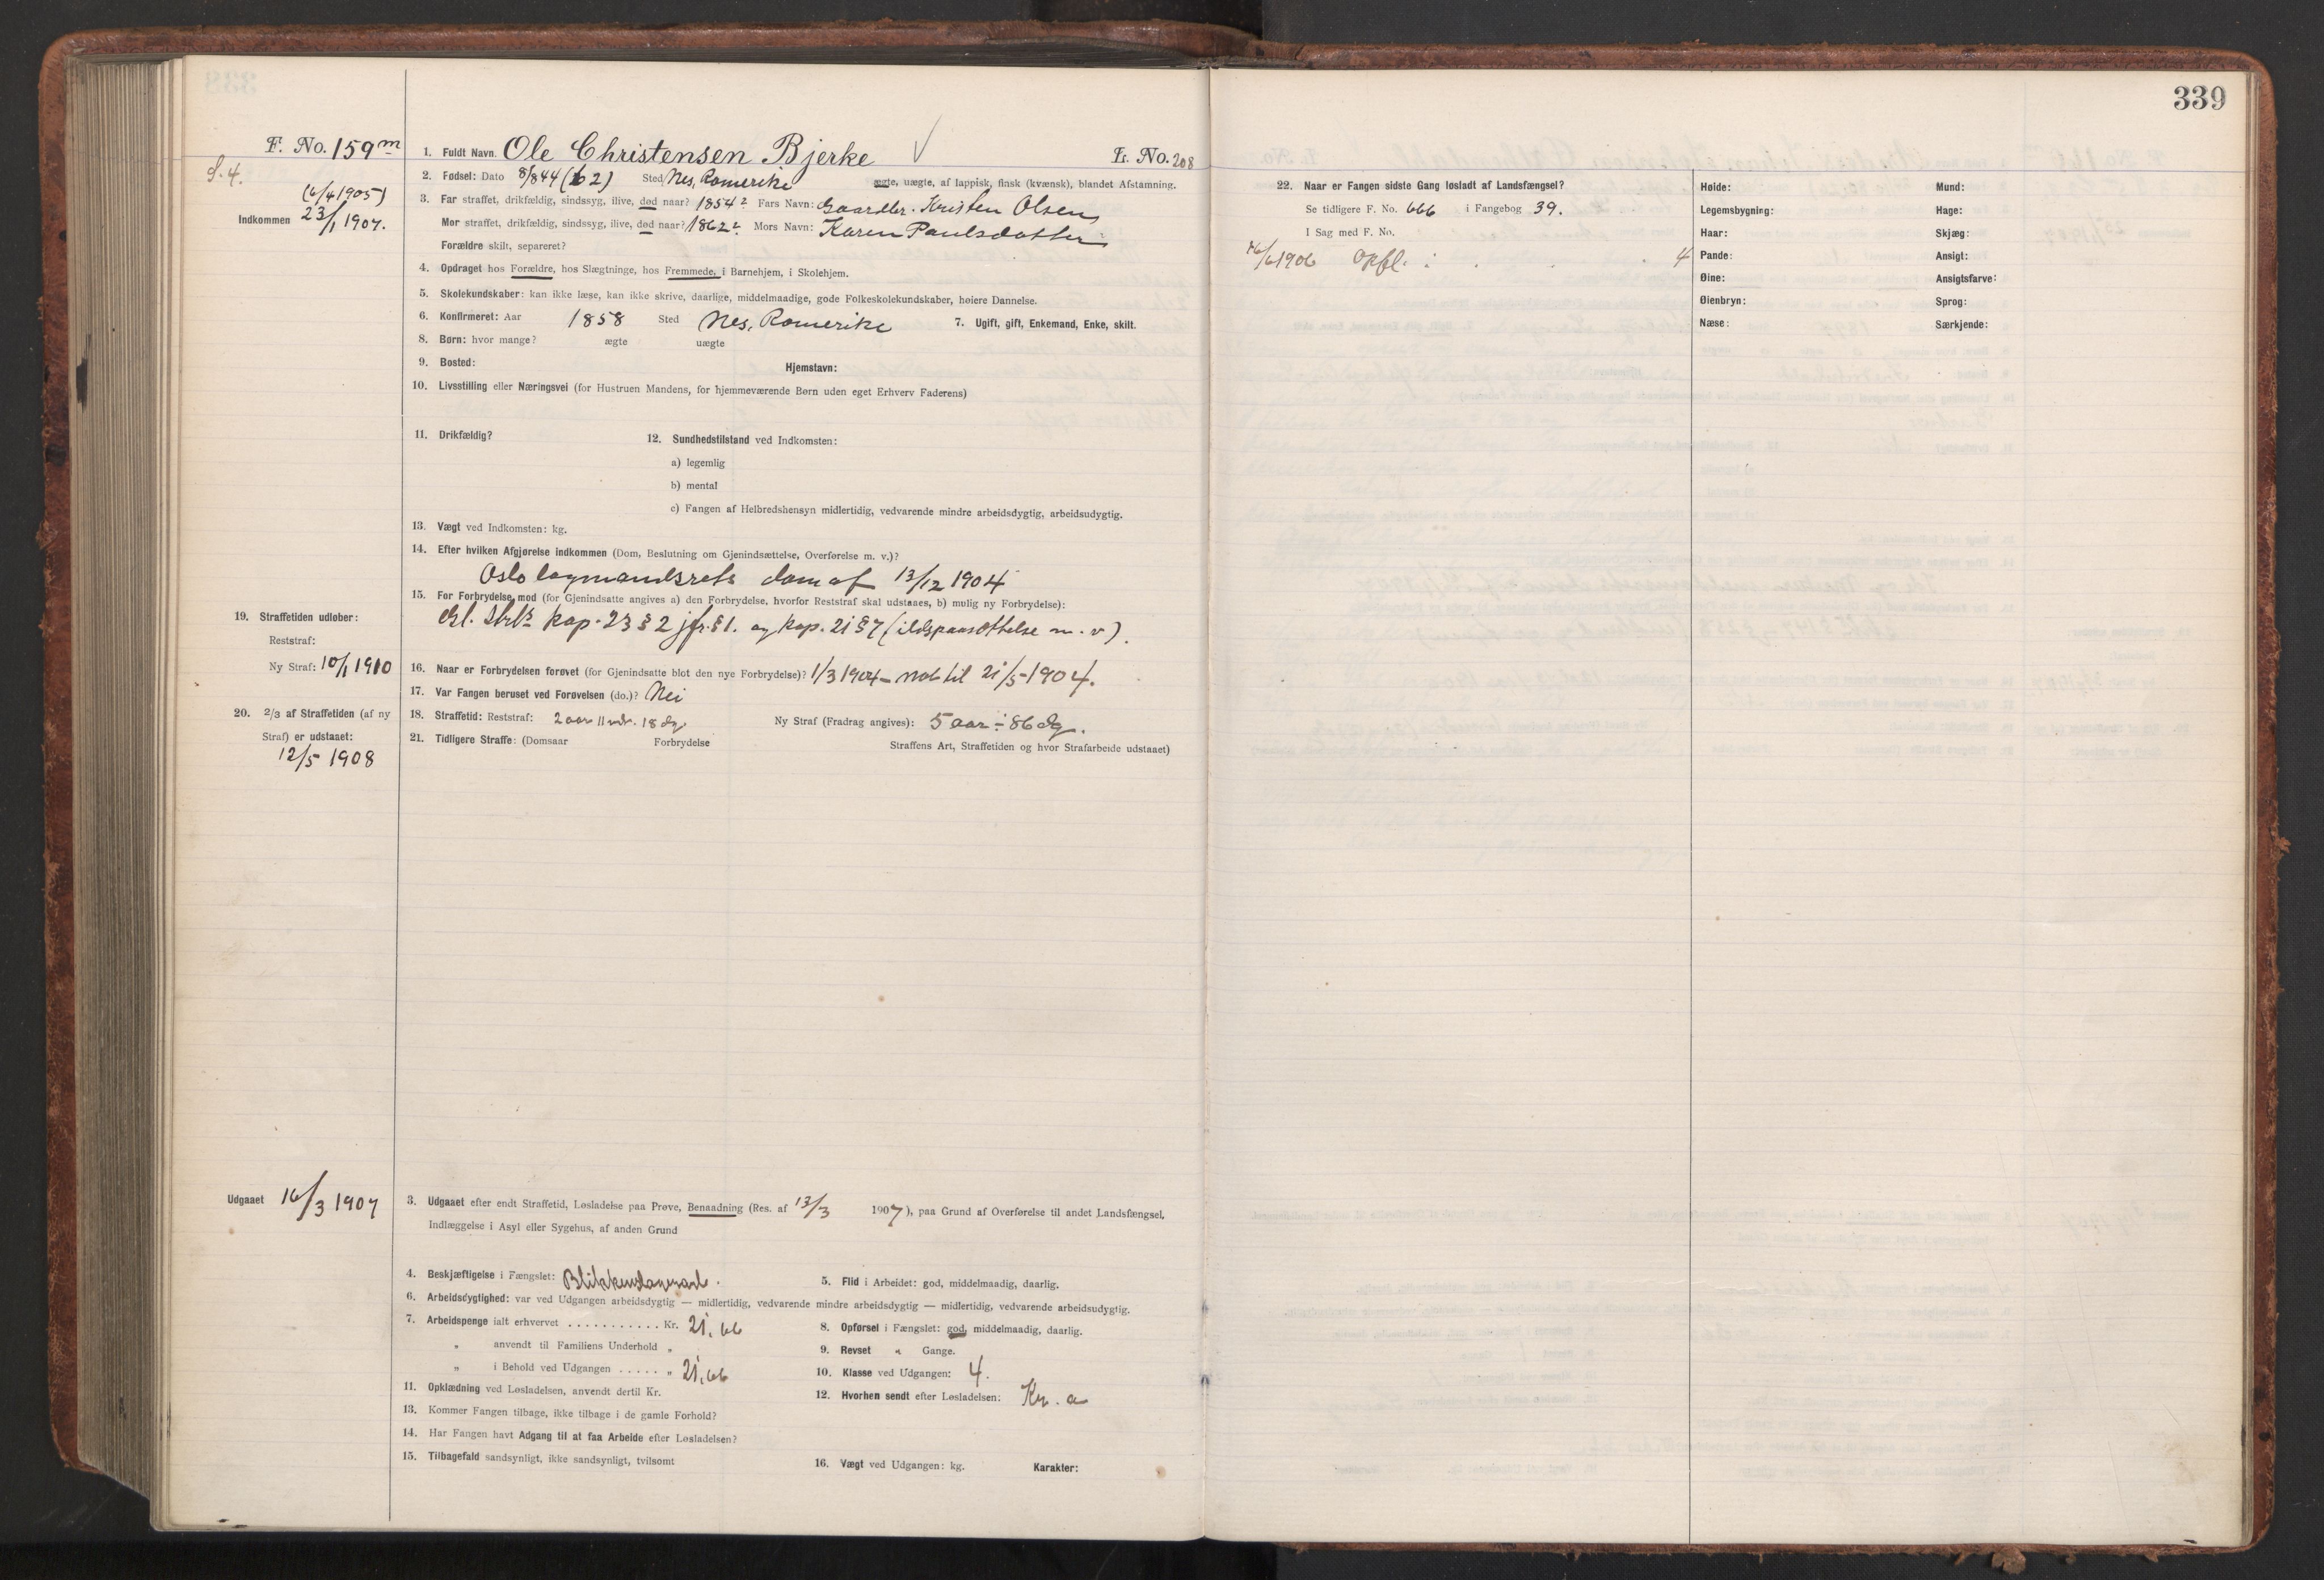 F. No. 159 m
S. 4.
(6/4 1905)
Indkommen 23/1 1907.
1. Fuldt Navn. Ole Christensen Bjerke L. No. 208
2. Fødsel: Dato 8/8 44 (62) Sted Nes, Romerike ægte, uægte, af lappisk, finsk (kvænsk), blandet Afstamning.
3. Far straffet, drikfældig, sindssyg, ilive, død naar? 1854 Fars Navn: Gaardbr. Kristen Olsen
Mor straffet, drikfældig, sindssyg, ilive, død naar? 1862 Mors Navn: Karen Paulsdatter
Forældre skilt, separeret?
4. Opdraget hos Forældre, hos Slægtninge, hos Fremmede, i Barnehjem, i Skolehjem.
5. Skolekundskaber: kan ikke læse, kan ikke skrive, daarlige, middelmaadige, gode Folkeskolekundskaber, høiere Dannelse.
6. Konfirmeret: Aar 1858 Sted Nes, Romerike 7. Ugift, gift, Enkemand, Enke, skilt.
8. Børn: hvor mange? ægte uægte
9. Bosted: Hjemstavn:
10. Livsstilling eller Næringsvei (for Hustruen Mandens, for hjemmeværende Børn uden eget Erhverv Faderens)
11. Drikfældig? 12. Sundhedstilstand ved Indkomsten:
a) legemlig
b) mental
c) Fangen af Helbredshensyn midlertidig, vedvarende mindre arbeidsdygtig, arbeidsudygtig.
13. Vægt ved Indkomsten: kg.
14. Efter hvilken Afgjørelse indkommen (Dom, Beslutning om Gjenindsættelse, Overførelse m. v.)?
Oslo lagmandsrets dom af 13/12 1904
15. For Forbrydelse mod (for Gjenindsatte angives a) den Forbrydelse, hvorfor Reststraf skal udstaaes, b) mulig ny Forbrydelse):
kap. 23 § 2 jfr. § 1. og kap. 21 § 7 (ildspaasættelse m. v).
16. Naar er Forbrydelsen forøvet (for Gjenindsatte blot den nye Forbrydelse)? 1/3 1904 – nat til 21/5 1904.
17. Var Fangen beruset ved Forøvelsen (do.)? Nei
18. Straffetid: Reststraf: 2 aar 11 mdr. 18 dg. Ny Straf (Fradrag angives): 5 aar ÷ 86 dg.
21. Tidligere Straffe: (Domsaar Forbrydelse Straffens Art, Straffetiden og hvor Strafarbeide udstaaet)
19. Straffetiden udløber:
Reststraf:
Ny Straf: 10/1 1910
20. 2/3 af Straffetiden (af ny
Straf) er udstaaet:
12/5 1908
Udgaaet 16/3 1907
3. Udgaaet efter endt Straffetid, Løsladelse paa Prøve, Benaadning (Res. af 13/3 1907), paa Grund af Overførelse til andet Landsfængsel,
Indlæggelse i Asyl eller Sygehus, af anden Grund
4. Beskjæftigelse i Fængslet: Blikkenslagerarb. 5. Flid i Arbeidet: god, middelmaadig, daarlig.
6. Arbeidsdygtighed: var ved Udgangen arbeidsdygtig — midlertidig, vedvarende mindre arbeidsdygtig — midlertidig, vedvarende arbeidsudygtig.
7. Arbeidspenge ialt erhvervet ........... Kr. 21,66 8. Opførsel i Fængslet: god, middelmaadig, daarlig.
„ anvendt til Familiens Underhold „ 9. Revset „ Gange.
„ i Behold ved Udgangen ..... „ 21,66 10. Klasse ved Udgangen: 4.
11. Opklædning ved Løsladelsen, anvendt dertil Kr. 12. Hvorhen sendt efter Løsladelsen: Kr. a
13. Kommer Fangen tilbage, ikke tilbage i de gamle Forhold?
14. Har Fangen havt Adgang til at faa Arbeide efter Løsladelsen?
15. Tilbagefald sandsynligt, ikke sandsynligt, tvilsomt 16. Vægt ved Udgangen: kg. Karakter:
339
22. Naar er Fangen sidste Gang løsladt af Landsfængsel?
Se tidligere F. No. 666 i Fangebog 39.
I Sag med F. No.
16/6 1906 Opfl. i 4
Høide: Mund:
Legemsbygning: Hage:
Haar: Skjæg:
Pande: Ansigt:
Øine: Ansigtsfarve:
Øienbryn: Sprog:
Næse: Særkjende: